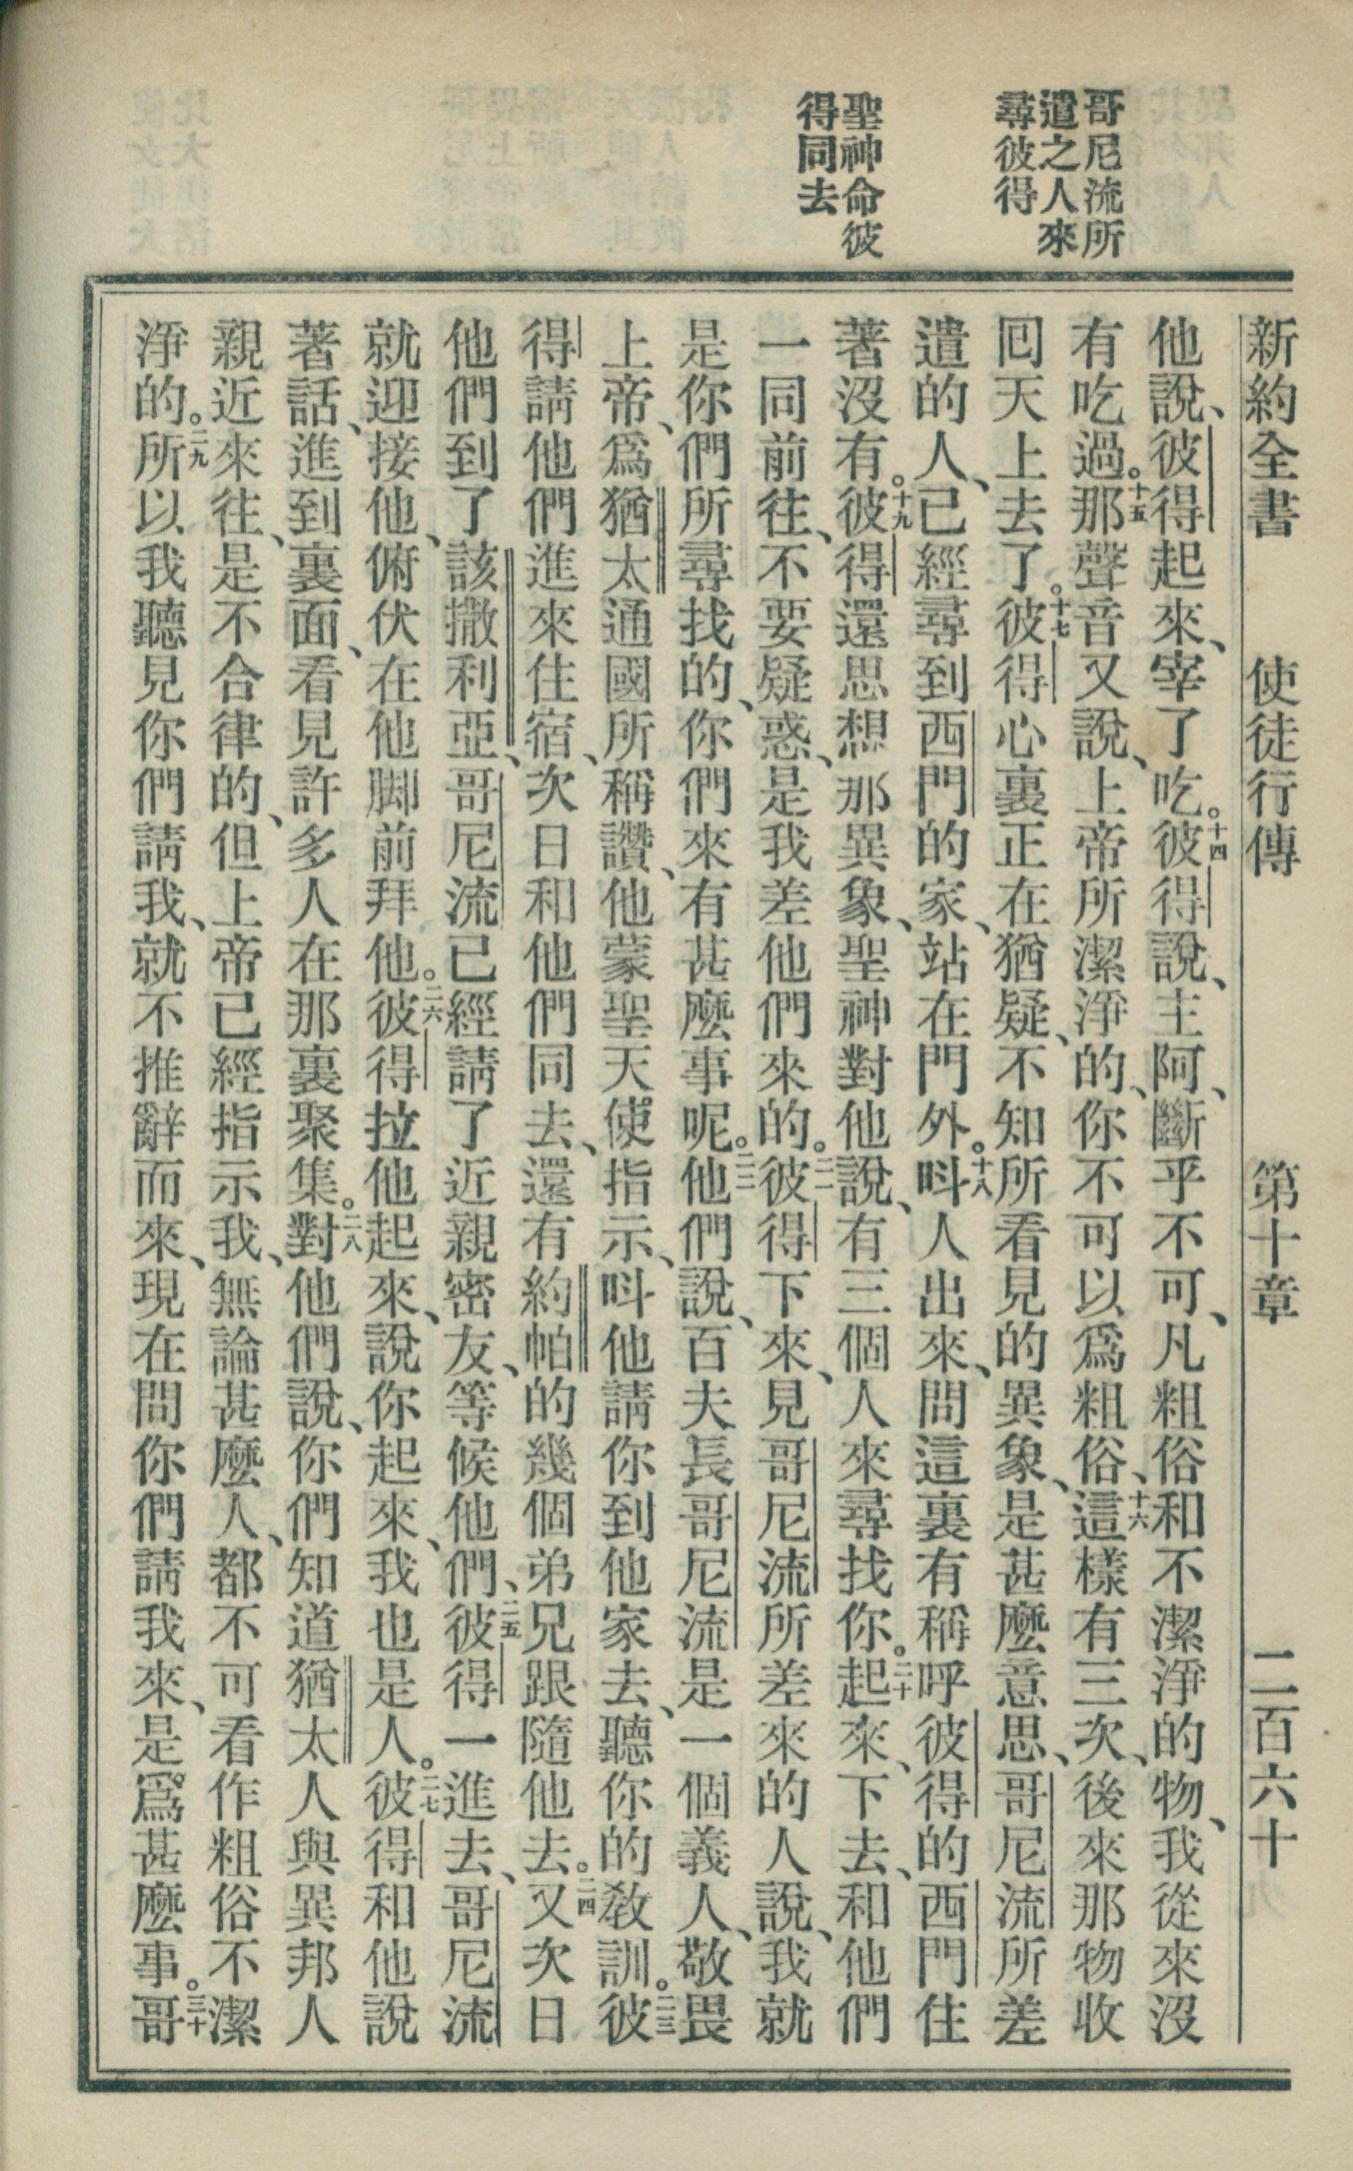 哥尼流所
遣之人來
尋彼得
聖神命彼
得同去
新約全書 使徒行傳 第十章 二百六十
他說、彼得起來、宰了吃。十四彼得說、主阿、斷乎不可、凡粗俗和不潔淨的物、我從來沒
有吃過。十五那聲音又說、上帝所潔淨的、你不可以爲粗俗、十六這樣有三次、後來那物收
囘天上去了。十七彼得心裏正在猶疑、不知所看見的異象、是甚麼意思、哥尼流所差
遣的人、已經尋到西門的家、站在門外。十八呌人出來、問這裏有稱呼彼得的西門住
著沒有。十九彼得還思想那異象、聖神對他說、有三個人來尋找你。二十起來、下去、和他們
一同前往、不要疑惑、是我差他們來的。二一彼得下來、見哥尼流所差來的人說、我就
是你們所尋找的、你們來有甚麼事呢。二二他們說、百夫長哥尼流是一個義人、敬畏
上帝、爲猶太通國所稱讚、他蒙聖天使指示、呌他請你到他家去、聽你的敎訓。二三彼
得請他們進來住宿、次日和他們同去、還有約帕的幾個弟兄跟隨他去。二四又次日
他們到了該撒利亞、哥尼流已經請了近親密友、等候他們、二五彼得一進去、哥尼流
就迎接他、俯伏在他脚前拜他。二六彼得拉他起來、說你起來、我也是人。二七彼得和他說
著話、進到裏面、看見許多人在那裏聚集。二八對他們說、你們知道猶太人與異邦人
親近來往、是不合律的、但上帝已經指示我、無論甚麼人、都不可看作粗俗不潔
淨的。二九所以我聽見你們請我、就不推辭而來、現在問你們請我來、是爲甚麼事。三十哥